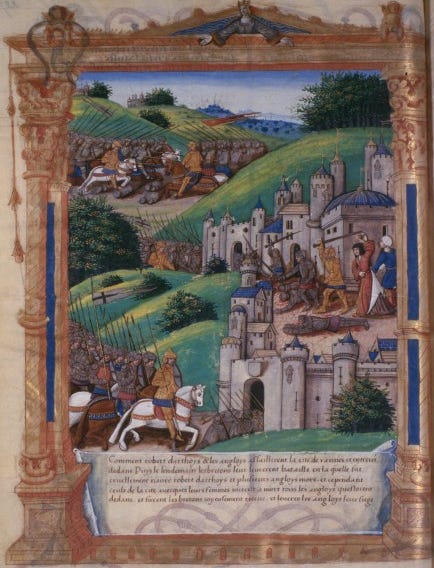 Comment robert darthoys & les angloys assaillirent la cite de vannes et entrerent
dedans Puys le lendemain les bretons leur livrerent bataille en la quelle fut
cruellement navre robert darthoys et plusieurs angloys mors. et cependant
ceulx de la cite avecques leurs femmes mirent a mort tous les angloys
dedans. et furent les bretons ioyeusement et leverent les angloys leur siege